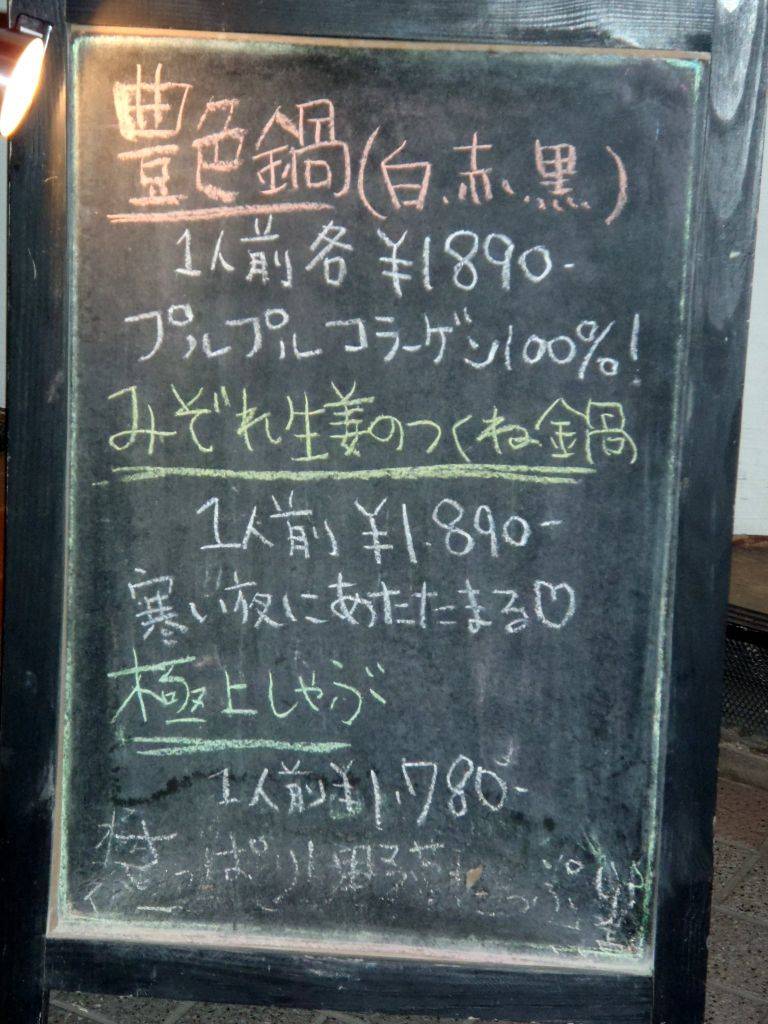 豊色鍋(白、赤、黒)
1人前各 ¥1890-
プルプルコラーゲン100%!
みぞれ生姜のつくね鍋
1人前 ¥1.890-
寒い夜にあたたまる♡
極上しゃぶ
1人前¥1.780-
っぱり!